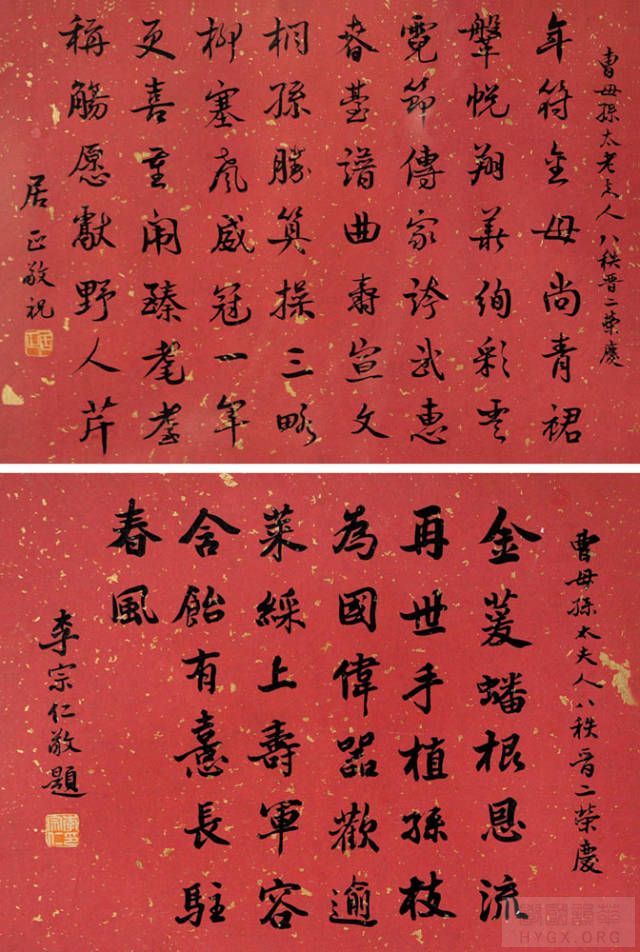 曹母孫太老夫人八秩晉二榮慶
年符金母尚青裙
鞶帨翔華絢彩雲
霓節傳家誇武惠
春臺譜曲壽宣文
桐孫勝算操三略
柳塞威冠一軍
更喜重闈臻耄耋
稱觴愿獻野人芹
居正敬祝
曹母孫太夫人八秩晉二榮慶
金萲蟠根恩流
再世手植孫枝
為國偉器歡逾
萊綵上壽軍容
含飴有憙長駐
春風
李宗仁敬題
HYGX.ORG